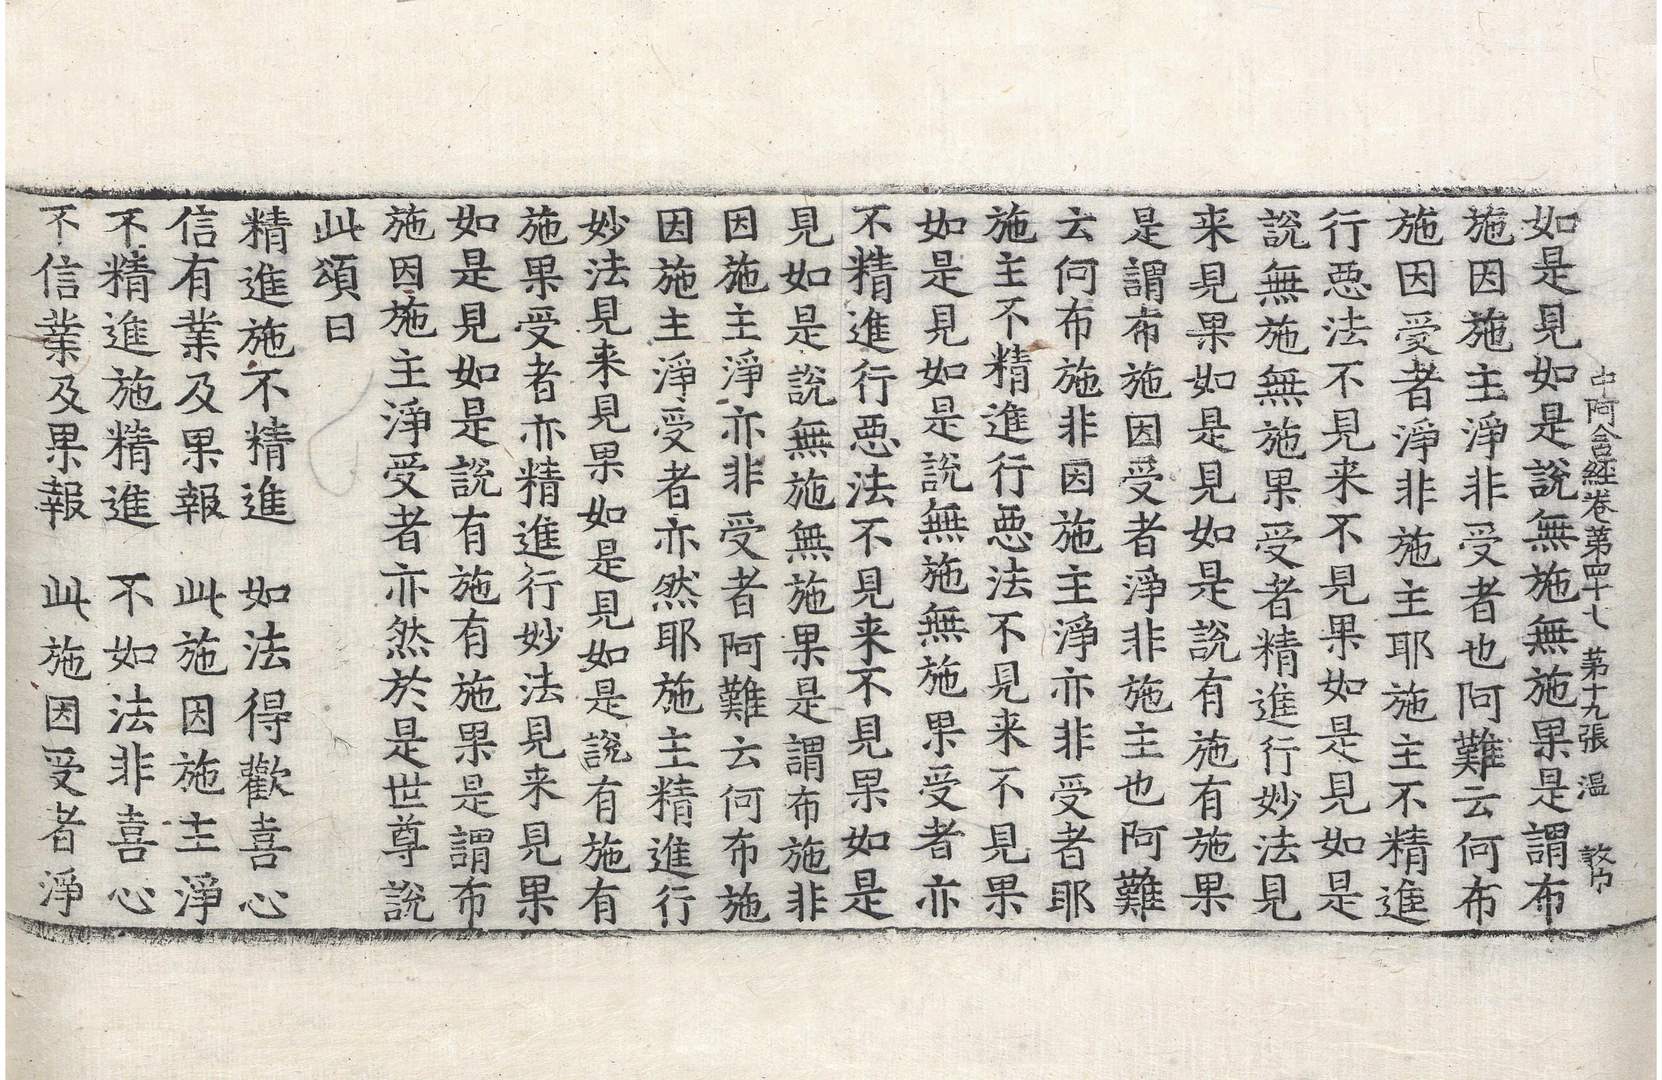 中阿含経卷第四十七 第十九張 溫
如是見如是說無施無施果是謂布
施因施主淨非受者也阿難云何布
施因受者淨非施主耶施主不精進
行悪法不見来不見果如是見如是
說無施無施果受者精進行妙法見
来見果如是見如是說有施有施果
是謂布施因受者淨非施主也阿難
云何布施非因施主淨亦非受者耶
施主不精進行悪法不見来不見果
如是見如是說無施無施果受者亦
不精進行悪法不見来不見果如是
見如是說無施無施果是謂布施非
因施主淨亦非受者阿難云何布施
因施主淨受者亦然耶施主精進行
妙法見来見果如是見如是說有施有
施果受者亦精進行妙法見来見果
如是見如是說有施有施果是謂布
施因施主淨受者亦然於是世尊說
此頌曰
精進施不精進 如法得歡喜心
信有業及果報 此施因施主淨
不精進施精進 不如法非喜心
不信業及果報 此施因受者淨